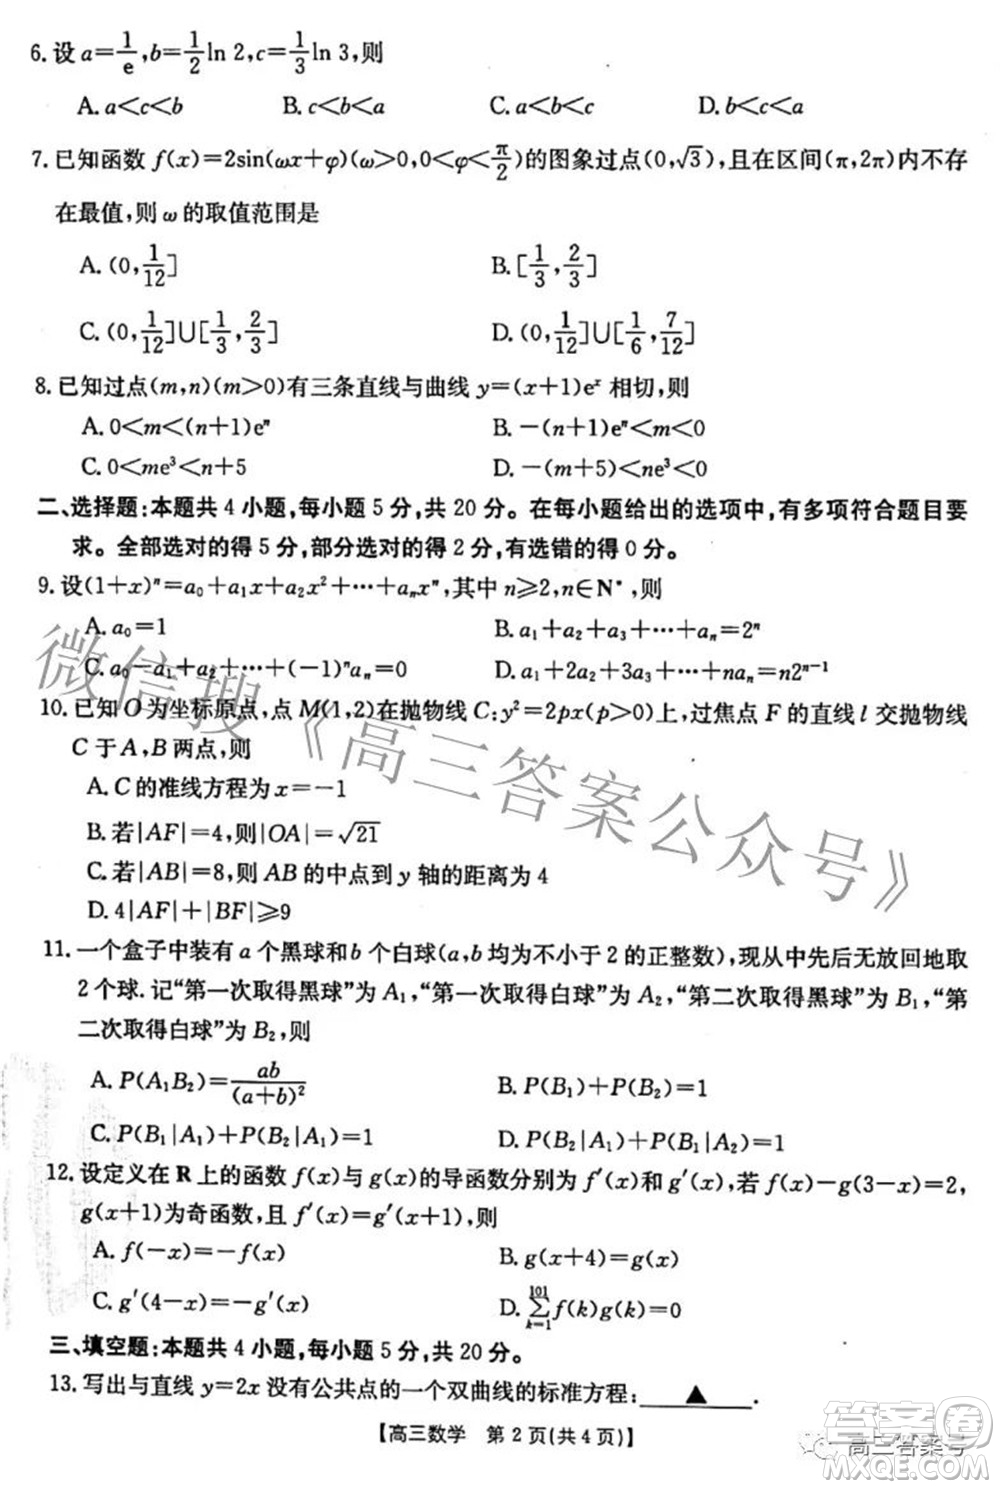 6. 设 a=1/e, b=1/2 ln 2, c=1/3 ln 3, 则
A. a<c<b B. c<b<a C. a<b<c D. b<c<a
7. 已知函数 f(x)=2sin(ωx+φ)(ω>0,0<φ<π/2)的图象过点(0,√3),且在区间(π,2π)内不存
在最值,则 ω 的取值范围是
A. (0,1/12] B. [1/3,2/3]
C. (0,1/12]∪[1/3,2/3] D. (0,1/12]∪[1/6,7/12]
8. 已知过点(m,n)(m>0)有三条直线与曲线 y=(x+1)eˣ 相切,则
A. 0<m<(n+1)eⁿ B. −(n+1)eⁿ<m<0
C. 0<me³<n+5 D. −(m+5)<ne³<0
二、选择题:本题共 4 小题,每小题 5 分,共 20 分。在每小题给出的选项中,有多项符合题目要
求。全部选对的得 5 分,部分选对的得 2 分,有选错的得 0 分。
9. 设(1+x)ⁿ=a₀+a₁x+a₂x²+⋯+aₙxⁿ,其中 n≥2,n∈N*,则
A. a₀=1 B. a₁+a₂+a₃+⋯+aₙ=2ⁿ
C. a₀−a₁+a₂+⋯+(−1)ⁿaₙ=0 D. a₁+2a₂+3a₃+⋯+naₙ=n2ⁿ⁻¹
10. 已知 O 为坐标原点,点 M(1,2)在抛物线 C:y²=2px(p>0)上,过焦点 F 的直线 l 交抛物线
C 于 A,B 两点,则
A. C 的准线方程为 x=−1
B. 若|AF|=4,则|OA|=√21
C. 若|AB|=8,则 AB 的中点到 y 轴的距离为 4
D. 4|AF|+|BF|≥9
11. 一个盒子中装有 a 个黑球和 b 个白球(a,b 均为不小于 2 的正整数),现从中先后无放回地取
2 个球. 记“第一次取得黑球”为 A₁,“第一次取得白球”为 A₂,“第二次取得黑球”为 B₁,“第
二次取得白球”为 B₂,则
A. P(A₁B₂)=ab/(a+b)² B. P(B₁)+P(B₂)=1
C. P(B₁|A₁)+P(B₂|A₁)=1 D. P(B₂|A₁)+P(B₁|A₂)=1
12. 设定义在 R 上的函数 f(x)与 g(x)的导函数分别为 f′(x)和 g′(x),若 f(x)−g(3−x)=2,
g(x+1)为奇函数,且 f′(x)=g′(x+1),则
A. f(−x)=−f(x) B. g(x+4)=g(x)
C. g′(4−x)=−g′(x) D. ∑(k=1→101) f(k)g(k)=0
三、填空题:本题共 4 小题,每小题 5 分,共 20 分。
13. 写出与直线 y=2x 没有公共点的一个双曲线的标准方程:▲.
【高三数学 第 2 页(共 4 页)】
微信搜《高三答案公众号》
高三答案号
答案圈
MXQE.COM